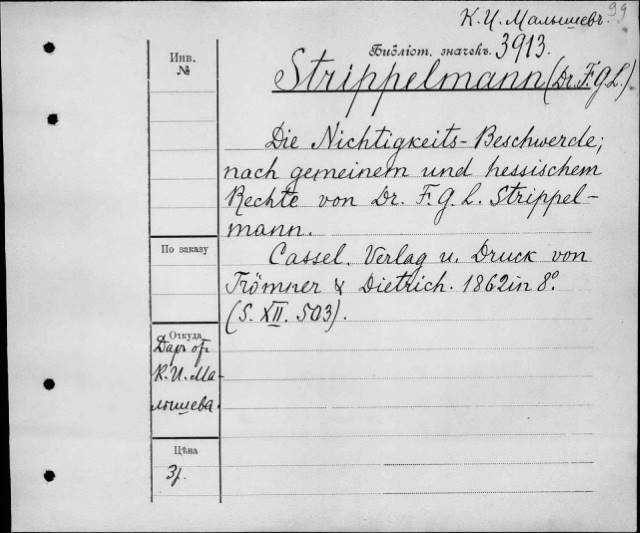 99
К. И. Малышевъ.
Библіот. значекъ. 3913.
Инв.
№
Strippelmann (Dr. F. G. L.).
Die Nichtigkeits-Beschwerde,
nach gemeinem und hessischem
Rechte von Dr. F. G. L. Strippel-
mann.
По заказу
Cassel. Verlag u. Druck von
Trömner & Dietrich. 1862 in 8º.
(S. XII. 503).
Откуда
Даръ от
К. И. Ма-
лышева.
Цѣна
3 р.